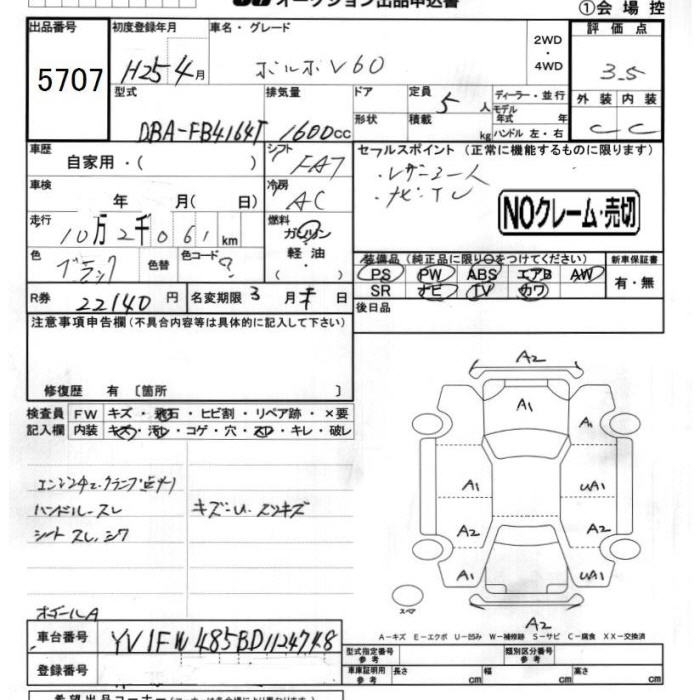 オークション出品申込書
①会場控
出品番号
5707
初度登録年月
H25 4月
車名・グレード
ボルボ V60
2WD
・
4WD
評価点
3.5
型式
DBA-FB4164T
排気量
1600cc
ドア
形状
定員 5 人
積載 kg
ディーラー・並行
モデル年式 年
ハンドル 左・右
外装 内装
C C
車歴
自家用・( )
シフト
FAT
セールスポイント (正常に機能するものに限ります)
・レザーシート
・ナビ・TV
NOクレーム・売切
車検
年 月( 日)
冷房
AC
走行
10万2千061km
燃料
ガソリン
軽油
・
色
ブラック
色替
色コード
?
装備品 (純正品に限り○をつけてください)
新車保証書
PS PW ABS エアB AW
SR ナビ TV カワ
有・無
R券 22140 円
名変期限 3 月 末 日
後日品
注意事項申告欄 (不具合内容等は具体的に記入して下さい)
修復歴 有 〔箇所 〕
検査員記入欄
FW キズ・飛石・ヒビ割・リペア跡・×要
内装 キズ・汚レ・コゲ・穴・スレ・キレ・破レ
エンジンチェックランプ点灯
ハンドルースレ
シート スレ、シワ
キズ・U・スリキズ
ホイールA
A2
A1
A1 UA1
A2 A2
A1 UA1
スペア
A2
A-キズ E-エクボ U-凹み W-補修跡 S-サビ C-腐食 XX-交換済
車台番号
YV1FW485BD1124748
登録番号
型式指定番号 参考
類別区分番号 参考
車庫証明用 参考
長さ cm
幅 cm
高さ cm
希望出品コーナー